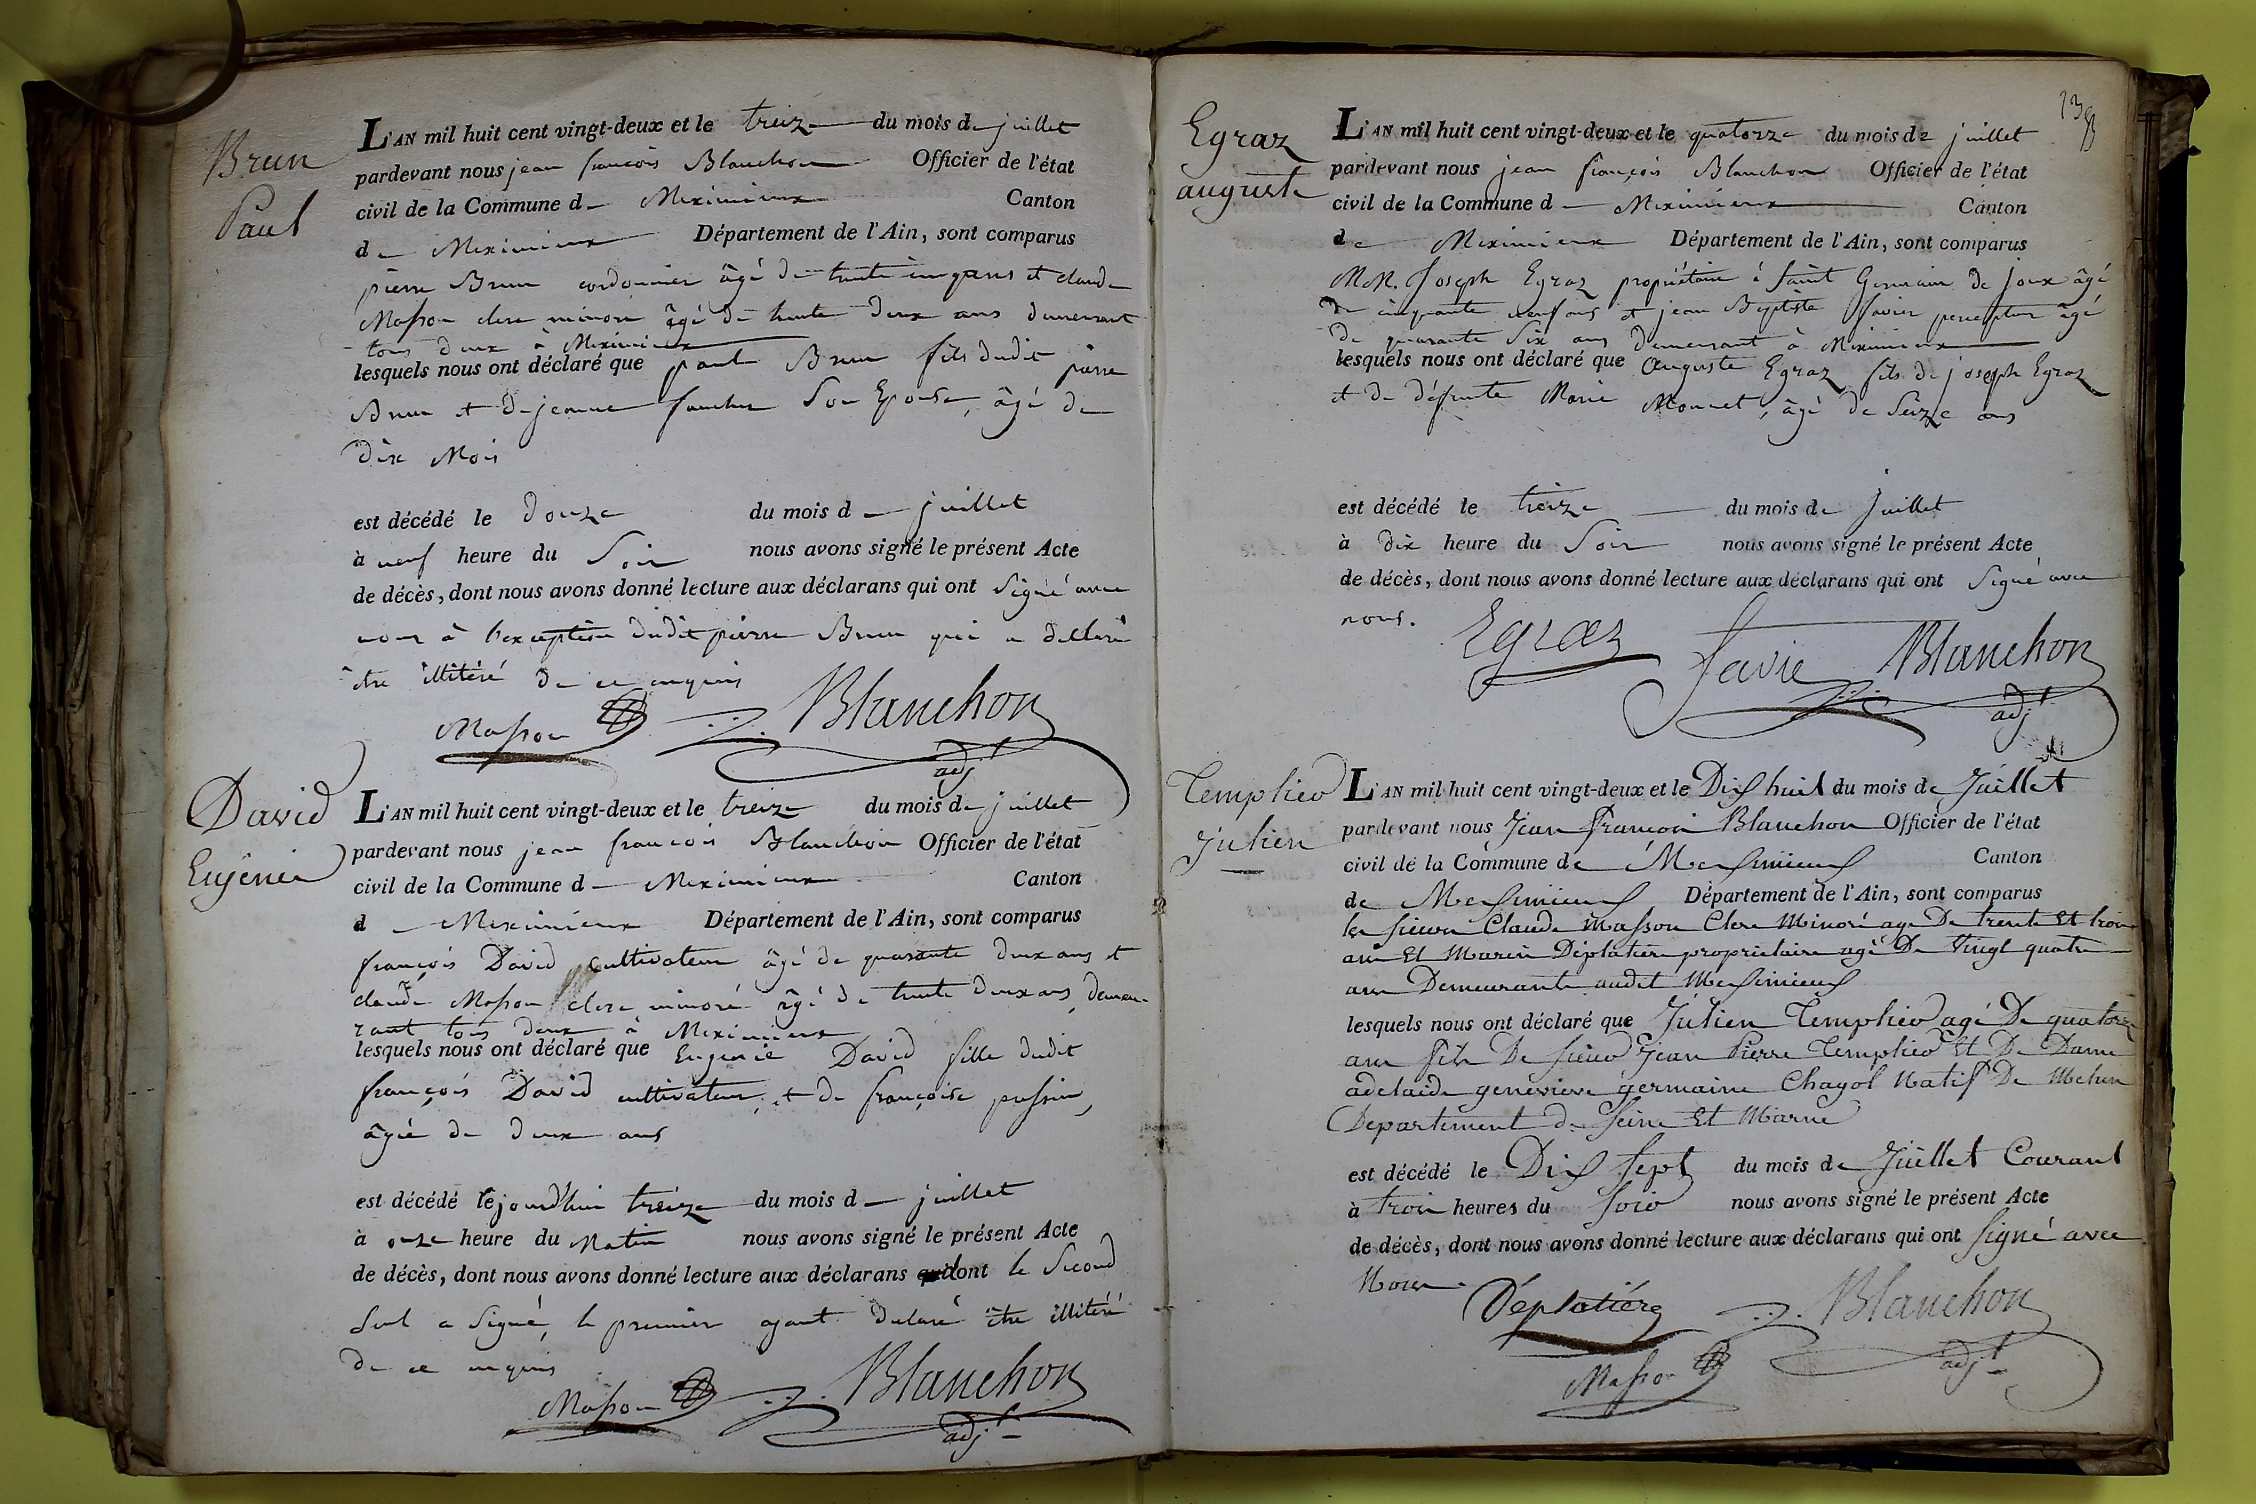 Brun
Paul
L'AN mil huit cent vingt-deux et le treize du mois de juillet
pardevant nous jean françois Blanchon Officier de l'état
civil de la Commune de Meximieux Canton
de Meximieux Département de l'Ain, sont comparus
pierre Brun cordonnier âgé de trente cinq ans et claude
Masson clerc minoré âgé de trente deux ans demeurant
tous deux à Meximieux
lesquels nous ont déclaré que paul Brun fils dudit pierre
Brun et de jeanne Son Epouse, âgé de
dix Mois
est décédé le douze du mois de juillet
à neuf heure du Soir nous avons signé le présent Acte
de décès, dont nous avons donné lecture aux déclarans qui ont Signé avec
nous à l'exception dudit pierre Brun qui a declaré
être illitéré de ce enquis
Masson Blanchon
adj.t
David
Eugénie
L'AN mil huit cent vingt-deux et le treize du mois de juillet
pardevant nous jean françois Blanchon Officier de l'état
civil de la Commune de Meximieux Canton
de Meximieux Département de l'Ain, sont comparus
françois David cultivateur âgé de quarante deux ans et
claude Masson clerc minoré âgé de trente deux ans, demeu-
rant tous deux à Meximieux
lesquels nous ont déclaré que Eugenie David fille dudit
françois David cultivateur, et de françoise
âgée de deux ans
est décédé lejourd'hui treize du mois de juillet
à onze heure du Matin nous avons signé le présent Acte
de décès, dont nous avons donné lecture aux déclarans dont le Second
Seul a Signé, le premier ayant declaré être illitéré
de ce enquis
Masson Blanchon
adj.t
138
Egraz
auguste
L'AN mil huit cent vingt-deux et le quatorze du mois de juillet
pardevant nous jean françois Blanchon Officier de l'état
civil de la Commune de Meximieux Canton
de Meximieux Département de l'Ain, sont comparus
MM. Joseph Egraz propriétaire à Saint Germain de Joux âgé
de cinquante neuf ans et jean Baptiste Favier percepteur âgé
de quarante Six ans demeurant à Meximieux
lesquels nous ont déclaré que Auguste Egraz fils de joseph Egraz
et de défunte Marie Monnet, âgé de Seize ans
est décédé le treize du mois de juillet
à dix heure du Soir nous avons signé le présent Acte
de décès, dont nous avons donné lecture aux déclarans qui ont Signé avec
nous.
Egraz Favier Blanchon
adj.t
Templier
Julien
L'AN mil huit cent vingt-deux et le Dix huit du mois de Juillet
pardevant nous Jean françois Blanchon Officier de l'état
civil de la Commune de Meximieux Canton
de Meximieux Département de l'Ain, sont comparus
les sieurs Claude Masson Clerc Minoré agé De trente et trois
ans Et Marin Déplatière propriétaire agé De Vingt quatre
ans Demeurants audit Meximieux
lesquels nous ont déclaré que Julien Templier agé De quatorze
ans fils De sieur Jean Pierre Templier Et De Dame
adelaide genevieve germaine Chayol Natif De Melun
Departement de Seine Et Marne
est décédé le Dix sept du mois de Juillet Courant
à trois heures du soir nous avons signé le présent Acte
de décès, dont nous avons donné lecture aux déclarans qui ont signé avec
Nous.
Déplatière Blanchon
Masson adj.t